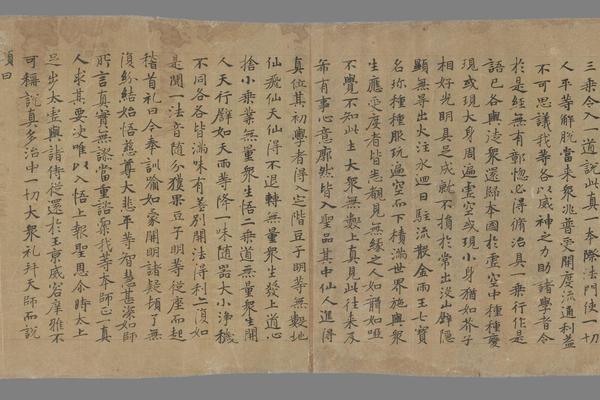 三乘令入一道說此真一本際法門使一切
人平等解脫當来衆兆普受開度流通利益
不可思議我等各以威神之力助諸學者令
於是經无有鄣㝵必得脩治具一乗行作是
語已各與徒衆還歸本國於虛空中種種變
現或現大身周遍虛空或現小身猶如芥子
相好光明具足成就不損於常出没山隱
顯無㝵出火注水迴日駐流散金雨玉七寶
名珎種種服玩遍空而下積滿世界施與衆
生應受度者皆悉覩見無緣之人如瞽如喑
不覺不知此土大衆無數上真見此往来及
希有事心意廓然皆入聖品其中仙人進得
真位其初學者得入空階豆子明等無數地
仙飛仙天仙得不退轉無量衆生發上道心
捨小乗業無量衆生悟二乗道無量衆生開
人天行譬如天雨等降一味随器大小淨穢
不同各各皆滿味有差別開法得利亦復如
是聞一法音随分獲果豆子明等従座而起
稽首礼曰今奉訓喻如蒙開明諸疑頓了無
復紛結始悟慈尊大悲平等智慧甚深如師
所言真實無謬當重諮稟我等本師正一真
人求其要决唯以入悟上報聖恩尒時太上
足步太虛與諸侍従還於玉京威容庠雅不
可稱說真多治中一切大衆礼拜天師而說
頌曰